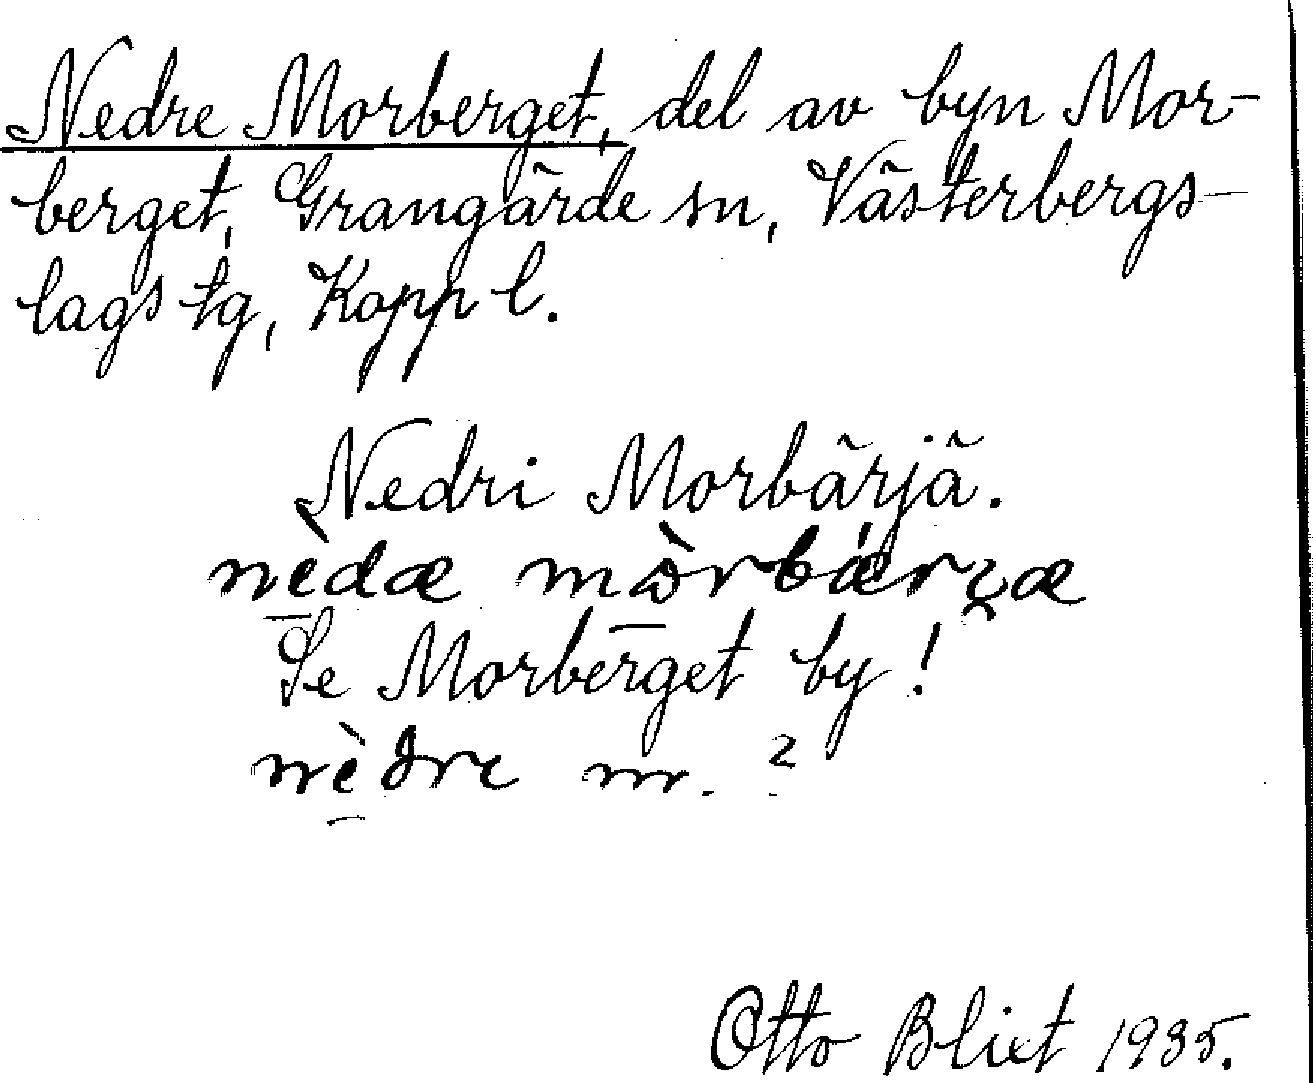 Nedre Morberget, del av byn Mor-
berget, Grangärde sn, Västerbergs-
lags tg, Kopp l.
Nedri Morbärjä.
nèdæ mòrbǽrʒæ
Se Morberget by!
nèdre m. ?
Otto Blixt 1935.